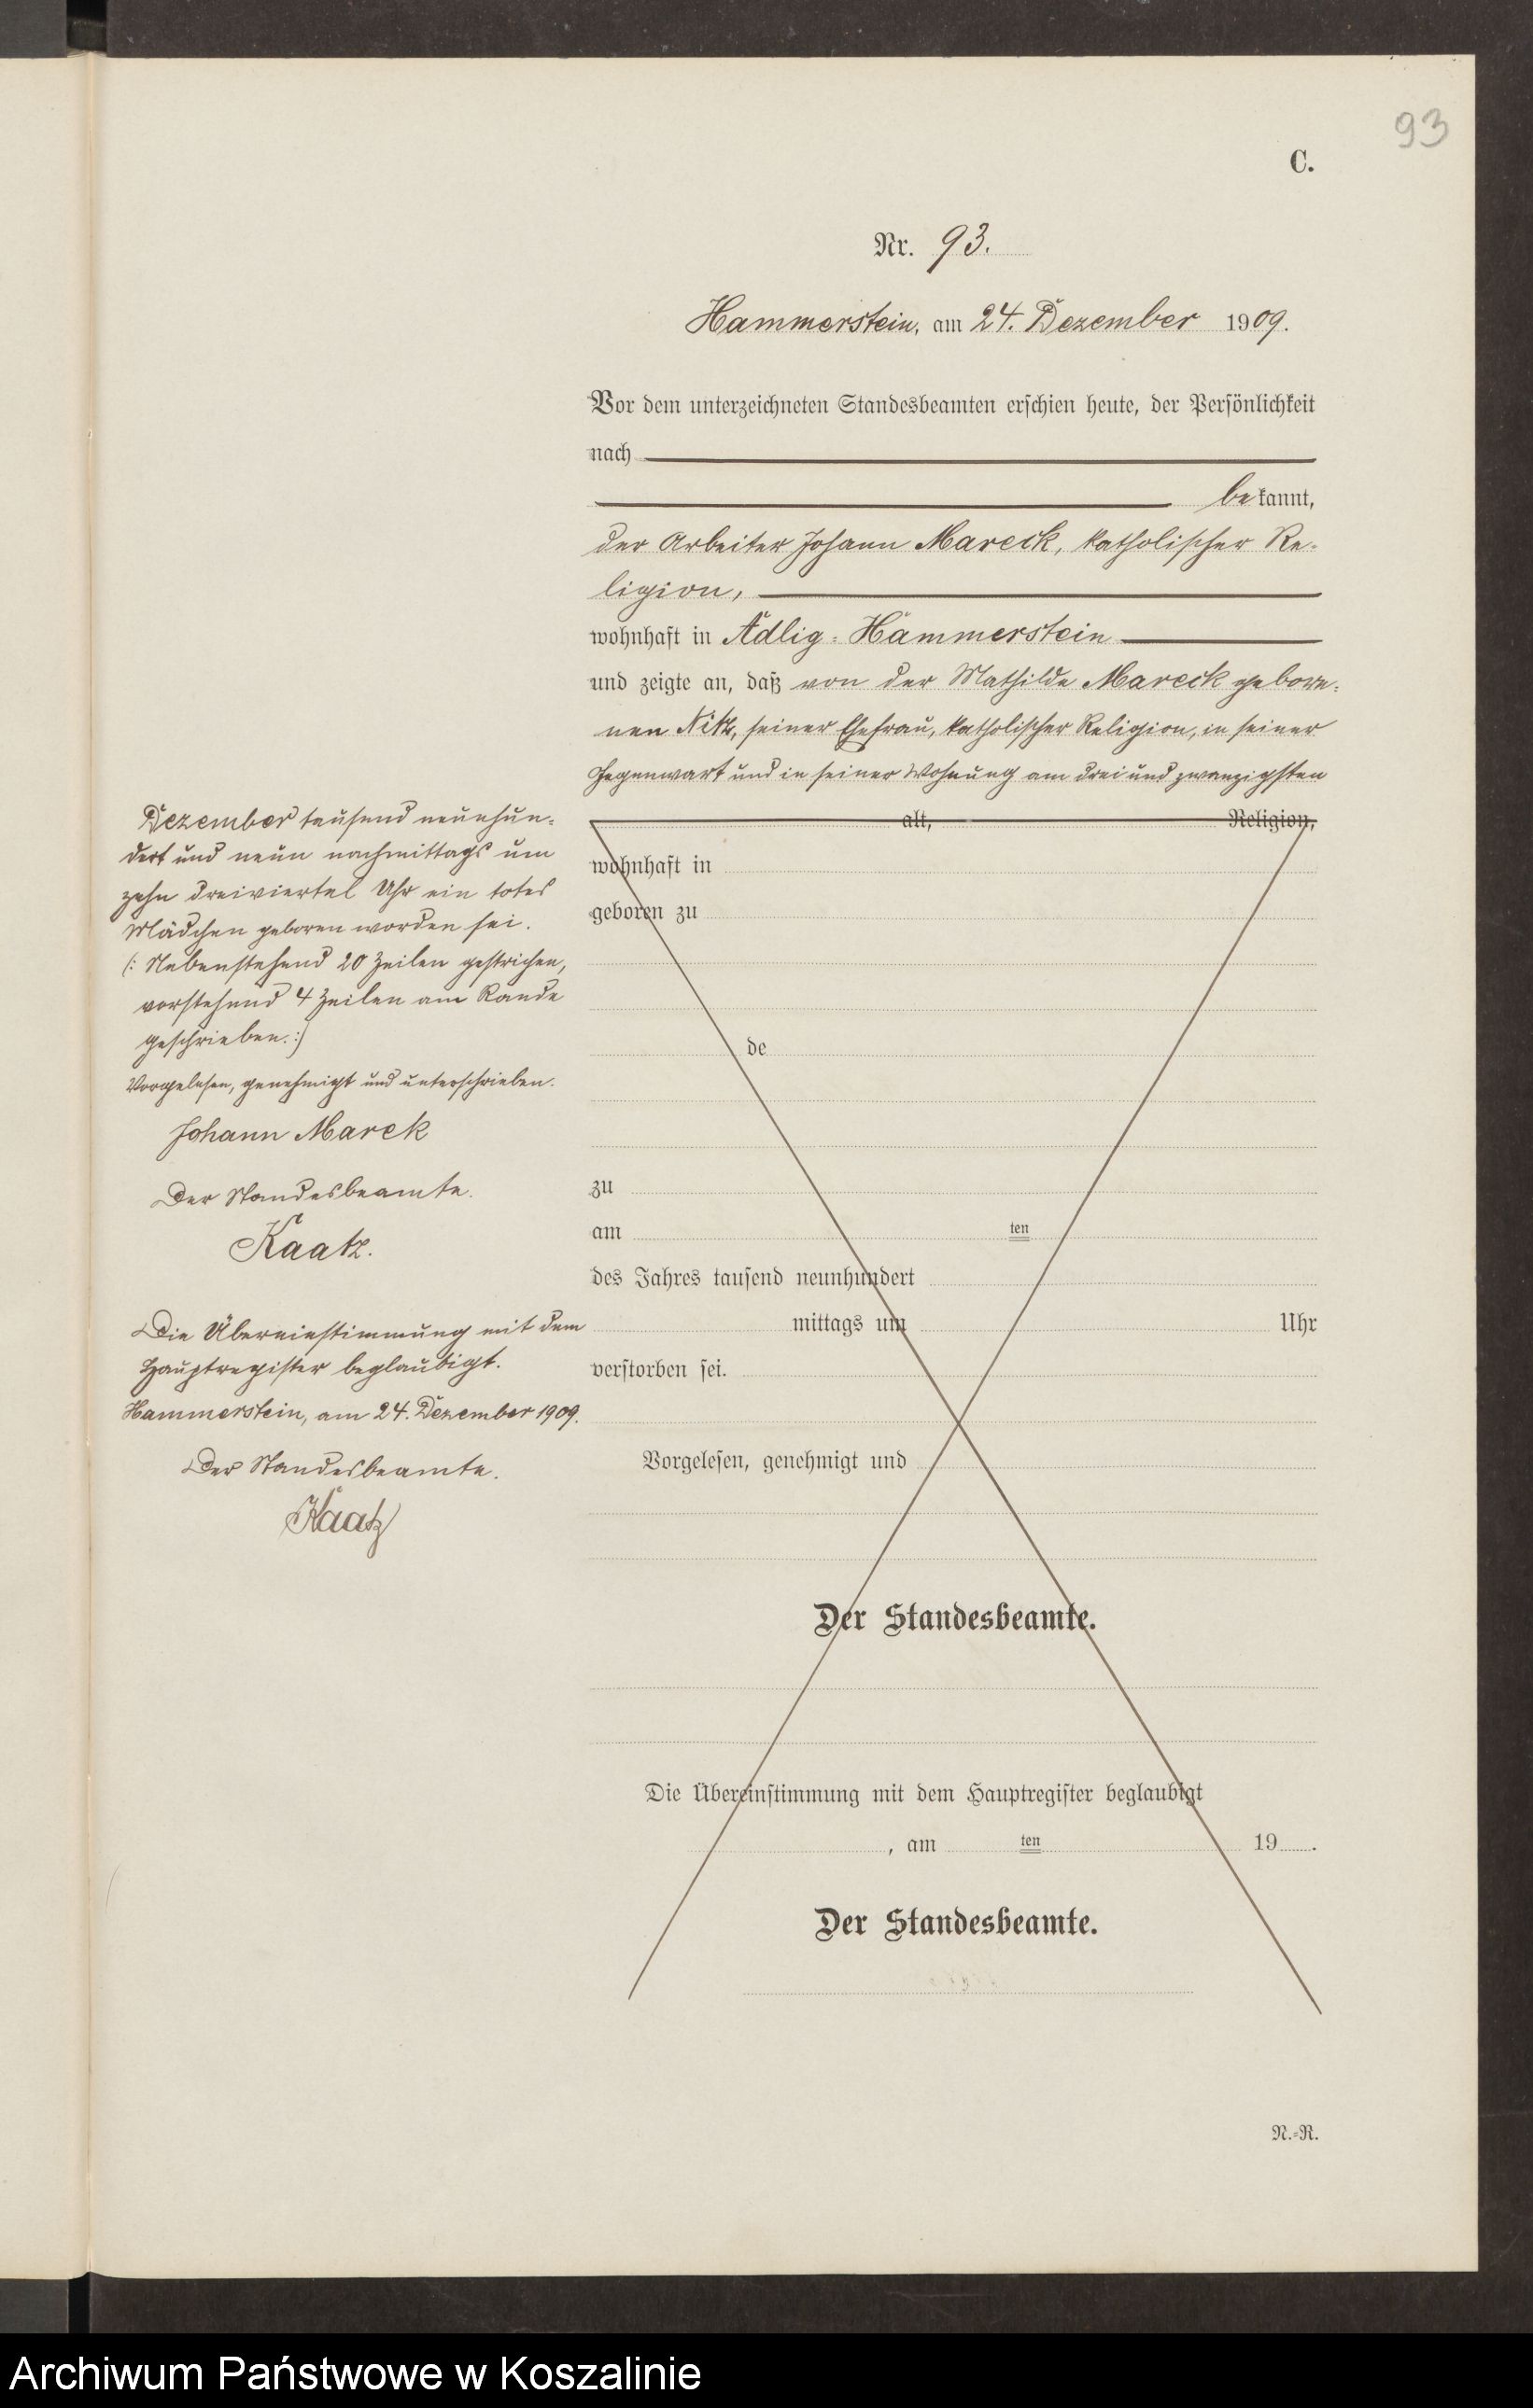 93
C.
Nr. 93.
Hammerstein, am 24. Dezember 1909.
Vor dem unterzeichneten Standesbeamten erschien heute, der Persönlichkeit
nach
bekannt,
der Arbeiter Johann Mareck, katholischer Re-
ligion,
wohnhaft in Adlig-Hammerstein
und zeigte an, daß von der Mathilde Mareck gebore-
nen Nitz, seiner Ehefrau, katholischer Religion, in seiner
Gegenwart und in seiner Wohnung am drei und zwanzigsten
Dezember tausend neunhun-
dert und neun nachmittags um
zehn dreiviertel Uhr ein totes
Mädchen geboren worden sei.
(: Nebenstehend 20 Zeilen gestrichen,
vorstehend 4 Zeilen am Rande
geschrieben. :)
Vorgelesen, genehmigt und unterschrieben.
Johann Marek
Der Standesbeamte.
Kaatz.
Die Übereinstimmung mit dem
Hauptregister beglaubigt.
Hammerstein, am 24. Dezember 1909.
Der Standesbeamte.
Kaatz
alt, Religion,
wohnhaft in
geboren zu
de
zu
am ten
des Jahres tausend neunhundert
mittags um Uhr
verstorben sei.
Vorgelesen, genehmigt und
Der Standesbeamte.
Die Übereinstimmung mit dem Hauptregister beglaubigt
, am ten 19 .
Der Standesbeamte.
N.-R.
Archiwum Państwowe w Koszalinie